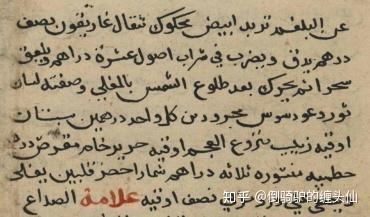 عن البلغم تربد ابيض محكوك مثقال غاريقون نصف
درهم يدق ويضرب في شراب اصول عشرة دراهم ويلعق
سحرا ثم يحرك بعد طلوع الشمس بالمغلي وصفته لسان
ثور وعود سوس مجرود من كل واحد درهمين سبستان
اوقيه زبيب منزوع العجم اوقيه حرير خام مقروض درهم
خطميه منثوره ثلاثه دراهم شمار اخضر قلبين يغلى
نصف اوقيه علامة الصداع
知乎 @倒骑驴的缠头仙